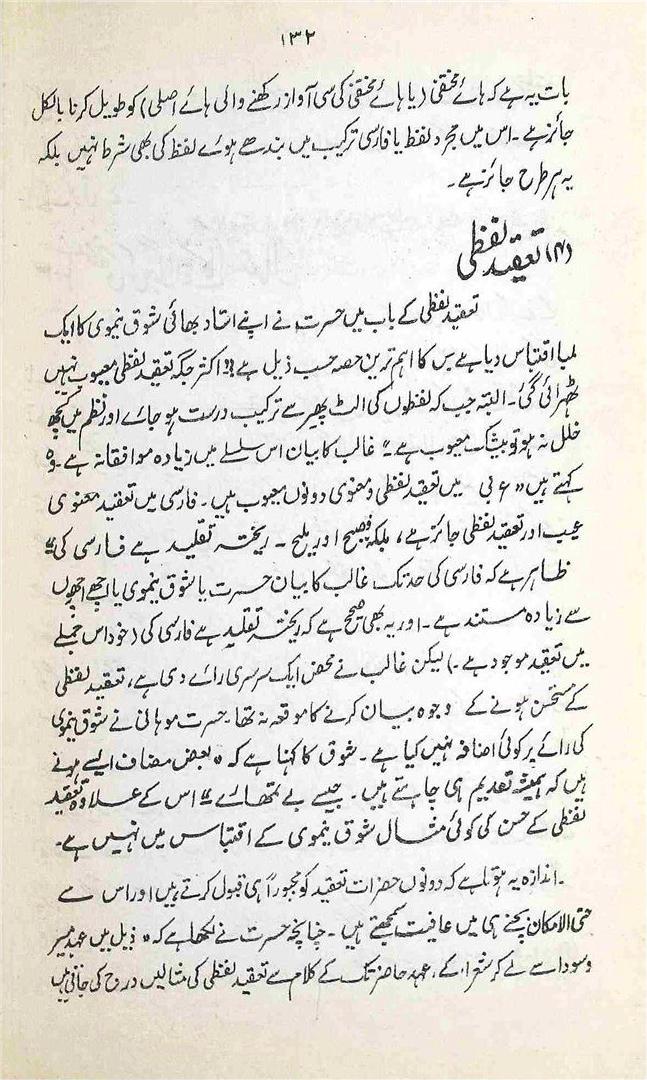 ۱۳۲
بات یہ ہے کہ ہائے مختفی (یا ہائے مختفی کی سی آواز رکھنے والی ہائے اصلی) کو طویل کرنا بالکل
جائز ہے۔ اس میں مجرد لفظ یا فارسی ترکیب میں بندھے ہوئے لفظ کی بھی شرط نہیں بلکہ
یہ ہر طرح جائز ہے۔
(۴) تعقید لفظی
تعقید لفظی کے باب میں حسرت نے اپنے استاد بھائی شوق نیموی کا ایک
لمبا اقتباس دیا ہے جس کا اہم ترین حصہ حسب ذیل ہے: "اکثر جگہ تعقید لفظی معیوب نہیں
ٹھہرائی گئی۔ البتہ جب کہ لفظوں کی الٹ پھیر سے ترکیب درست ہو جائے اور نظم میں کچھ
خلل نہ ہو تو بیشک معیوب ہے" غالب کا بیان اس سلسلے میں زیادہ موافقانہ ہے۔ وہ
کہتے ہیں "عربی میں تعقید لفظی و معنوی دونوں معیوب ہیں۔ فارسی میں تعقید معنوی
عیب اور تعقید لفظی جائز ہے، بلکہ فصیح اور ملیح۔ ریختہ تقلید ہے فارسی کی"
ظاہر ہے کہ فارسی کی حد تک غالب کا بیان حسرت یا شوق نیموی یا اچھے اچھوں
سے زیادہ مستند ہے۔ اور یہ بھی صحیح ہے کہ ریختہ تقلید ہے فارسی کی (خود اس جملے
میں تعقید موجود ہے۔) لیکن غالب نے محض ایک سرسری رائے دی ہے، تعقید لفظی
کے مستحسن ہونے کے وجوہ بیان کرنے کا موقعہ نہ تھا۔ حسرت موہانی نے شوق نیموی
کی رائے پر کوئی اضافہ نہیں کیا ہے۔ شوق کا کہنا ہے کہ "بعض مضاف ایسے ہوتے
ہیں کہ ہمیشہ تقدیم ہی چاہتے ہیں۔ جیسے بے تمھارے" اس کے علاوہ تعقید
لفظی کے حسن کی کوئی مثال شوق نیموی کے اقتباس میں نہیں ہے۔
اندازہ یہ ہوتا ہے کہ دونوں حضرات تعقید کو مجبوراً ہی قبول کرتے ہیں اور اس سے
حتی الامکان بچنے ہی میں عافیت سمجھتے ہیں۔ چنانچہ حسرت نے لکھا ہے کہ "ذیل میں عہد میر
و سودا سے لے کر شعرائے، عہد حاضر تک کے کلام سے تعقید لفظی کی مثالیں درج کی جاتی ہیں